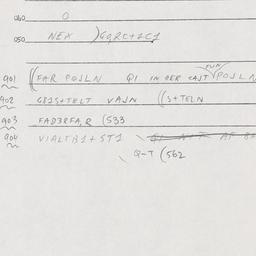 040 O
050 NEX )GQRC+1C1
901 ((FAR POJLN QI IN DER CAJT POJLN
902 GB1S+TELT VAJN ((S+TELN
903 FAD3RFA,R (533
904 VIALTB1+ST1
Q-T (562